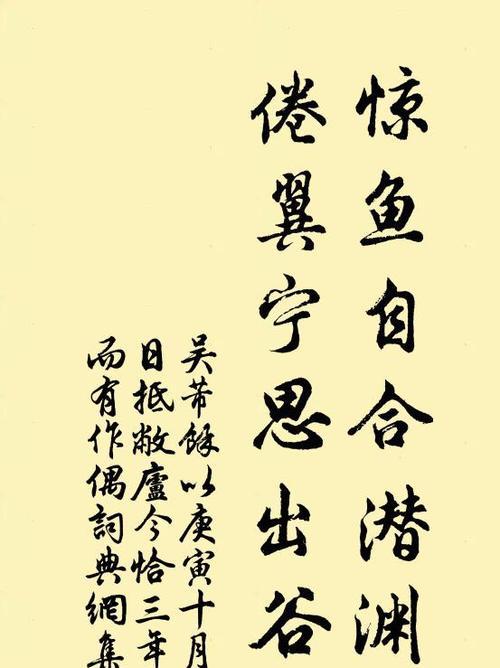 惊鱼自合潜渊
倦翼宁思出谷
吴芾馀以庚寅十月
日抵敝廬今恰三年
而有作偶詞典網集